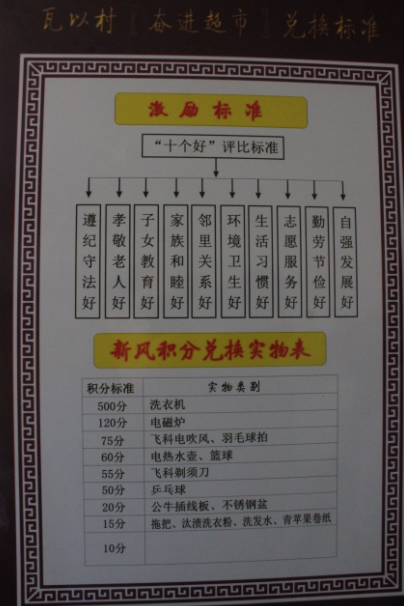 瓦以村 [奋进超市] 兑换标准
激励标准
“十个好”评比标准
遵纪守法好
孝敬老人好
子女教育好
家族和睦好
邻里关系好
环境卫生好
生活习惯好
志愿服务好
勤劳节俭好
自强发展好
新风积分兑换实物表
积分标准 实物类别
500分 洗衣机
120分 电磁炉
75分 飞科电吹风、羽毛球拍
60分 电热水壶、篮球
55分 飞科剃须刀
50分 乒乓球
20分 公牛插线板、不锈钢盆
15分 拖把、汰渍洗衣粉、洗发水、青苹果卷纸
10分